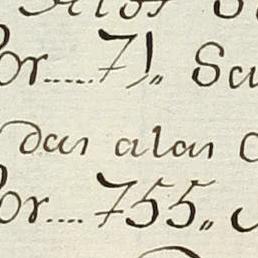 or..... 71,, Sa
das alas
or.... 755,,